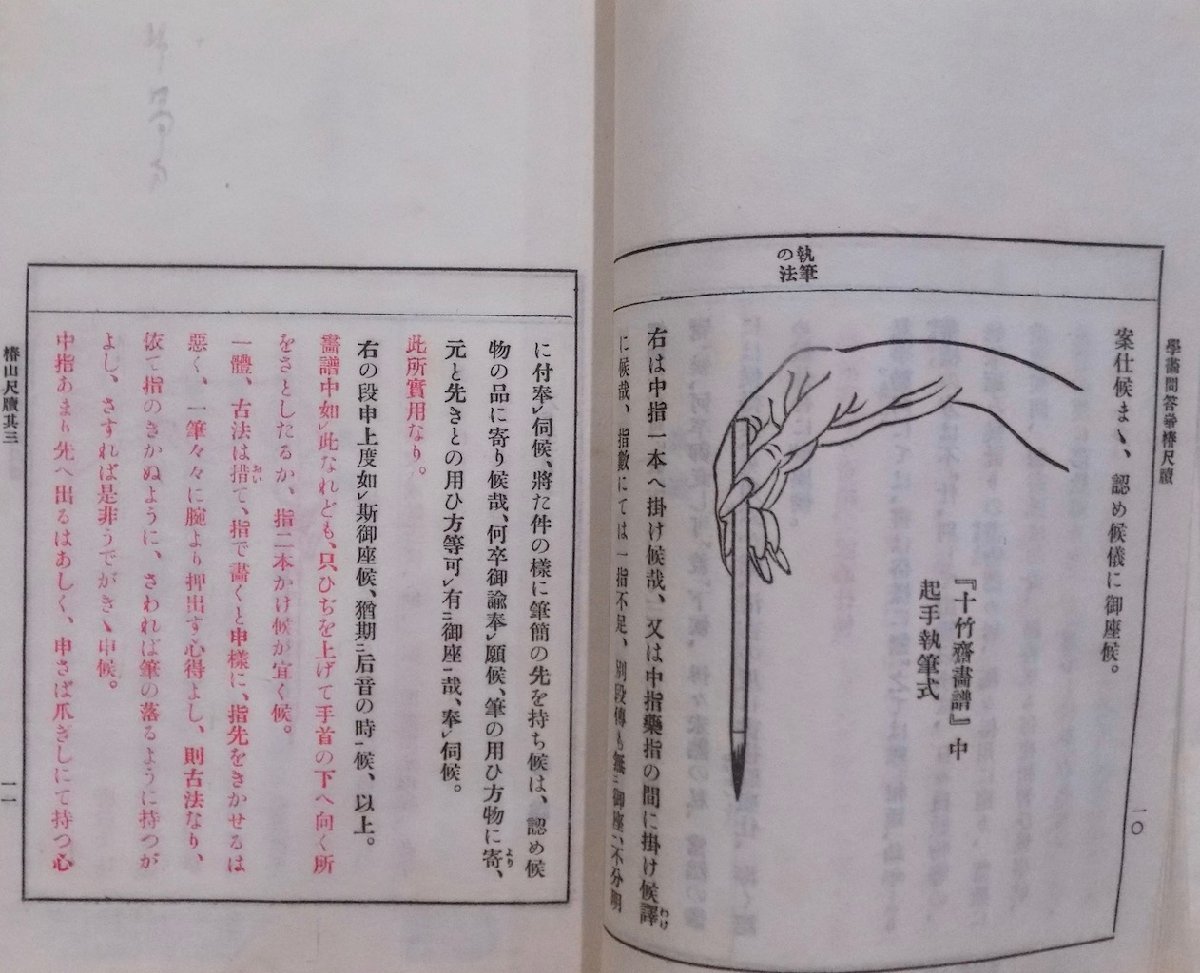 學畫問答華椿尺牘
一〇
執筆
の法
案仕候まゝ、認め候儀に御座候。
『十竹齋畵譜』中
起手執筆式
右は中指一本へ掛け候哉、又は中指藥指の間に掛け候譯
わけ
に候哉、指數にては一指不足、別段傳も無ニ御座一、不分明
に付奉レ伺候、將た件の樣に筆簡の先を持ち候は、認め候
物の品に寄り候哉、何卒御諭奉レ願候、筆の用ひ方物に寄、
より
元と先きとの用ひ方等可レ有ニ御座一哉、奉レ伺候。
此所實用なり。
右の段申上度如レ斯御座候、猶期ニ后音の時一候、以上。
畵譜中如レ此なれども、只ひぢを上げて手首の下へ向く所
をさとしたるか、指二本かけ候が宜く候。
一體、古法は措て、指で書くと申樣に、指先をきかせるは
おい
惡く、一筆々々に腕より押出す心得よし、則古法なり、
依て指のきかぬように、さわれば筆の落るように持つが
よし、さすれば是非うでがきゝ申候。
中指あまり先へ出るはあしく、申さば爪ぎしにて持つ心
椿山尺牘其三
一一